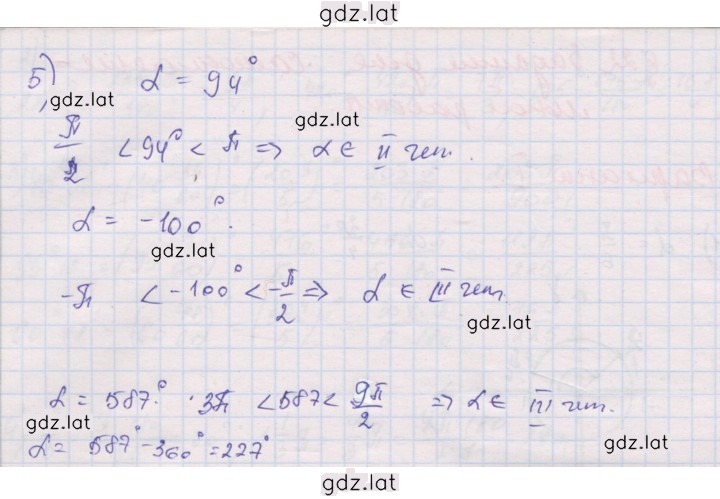 gdz.lat
5) α = 94°
gdz.lat
gdz.lat
π/2 < 94° < π => α ∈ II чет.
α = -100°.
gdz.lat
-π < -100° < -π/2 => α ∈ III чет.
gdz.lat
α = 587° · 3π < 587 < 9π/2 => α ∈ III чет.
gdz.lat
α = 587° - 360° = 227°
gdz.lat
gdz.lat